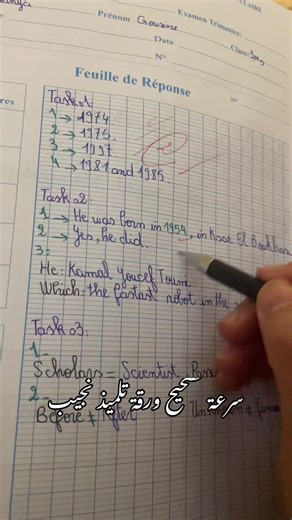 CLAIRE
Prénom : Gousine
Examen Trimestre:
Date
Classe: 3M
N°
Feuille de Réponse
N°
Task 01
1 → 1974.
2 → 1975.
3 → 1997
4 → 1981 and 1985.
Task 02:
1 → He was born in 1954, in Ksar El Boukhari
2 → Yes, he did.
3:
He: Kamal Youcef Toumi
Which: the fastest robot in the
Task 03:
1-
Scholars = Scientist
2
سرعة تصحيح ورقة تلميذ نجيب
Before ≠ After